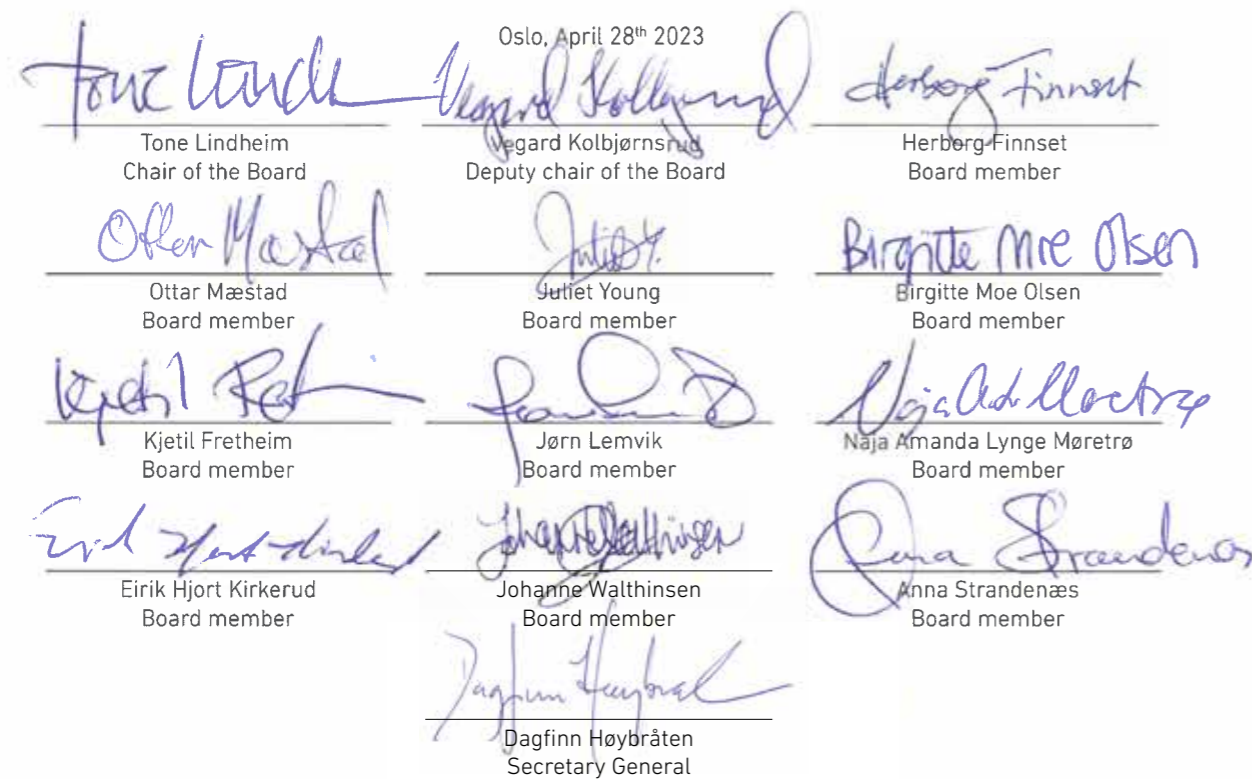 Oslo, April 28th 2023
Tone Lindheim
Chair of the Board
Vegard Kolbjørnsrud
Deputy chair of the Board
Herborg Finnset
Herborg Finnset
Board member
Ottar Mæstad
Board member
Juliet Y.
Juliet Young
Board member
Birgitte Moe Olsen
Birgitte Moe Olsen
Board member
Kjetil Fretheim
Board member
Jørn Lemvik
Board member
Naja Amanda Lynge Møretrø
Board member
Eirik Hjort Kirkerud
Board member
Johanne Walthinsen
Board member
Anna Strandenæs
Board member
Dagfinn Høybråten
Secretary General